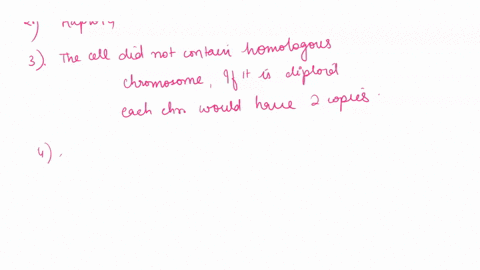 3). The cell did not contain homologous
chromosome, If it is diploid
each chr would have 2 copies.
4).